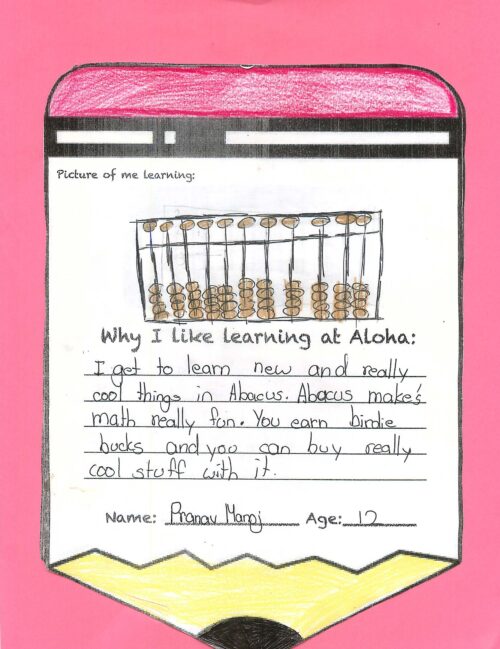 Picture of me learning:
Why I like learning at Aloha:
I get to learn new and really
cool things in Abacus. Abacus make's
math really fun. You earn birdie
bucks and you can buy really
cool stuff with it.
Name: Pranav Manoj Age: 12